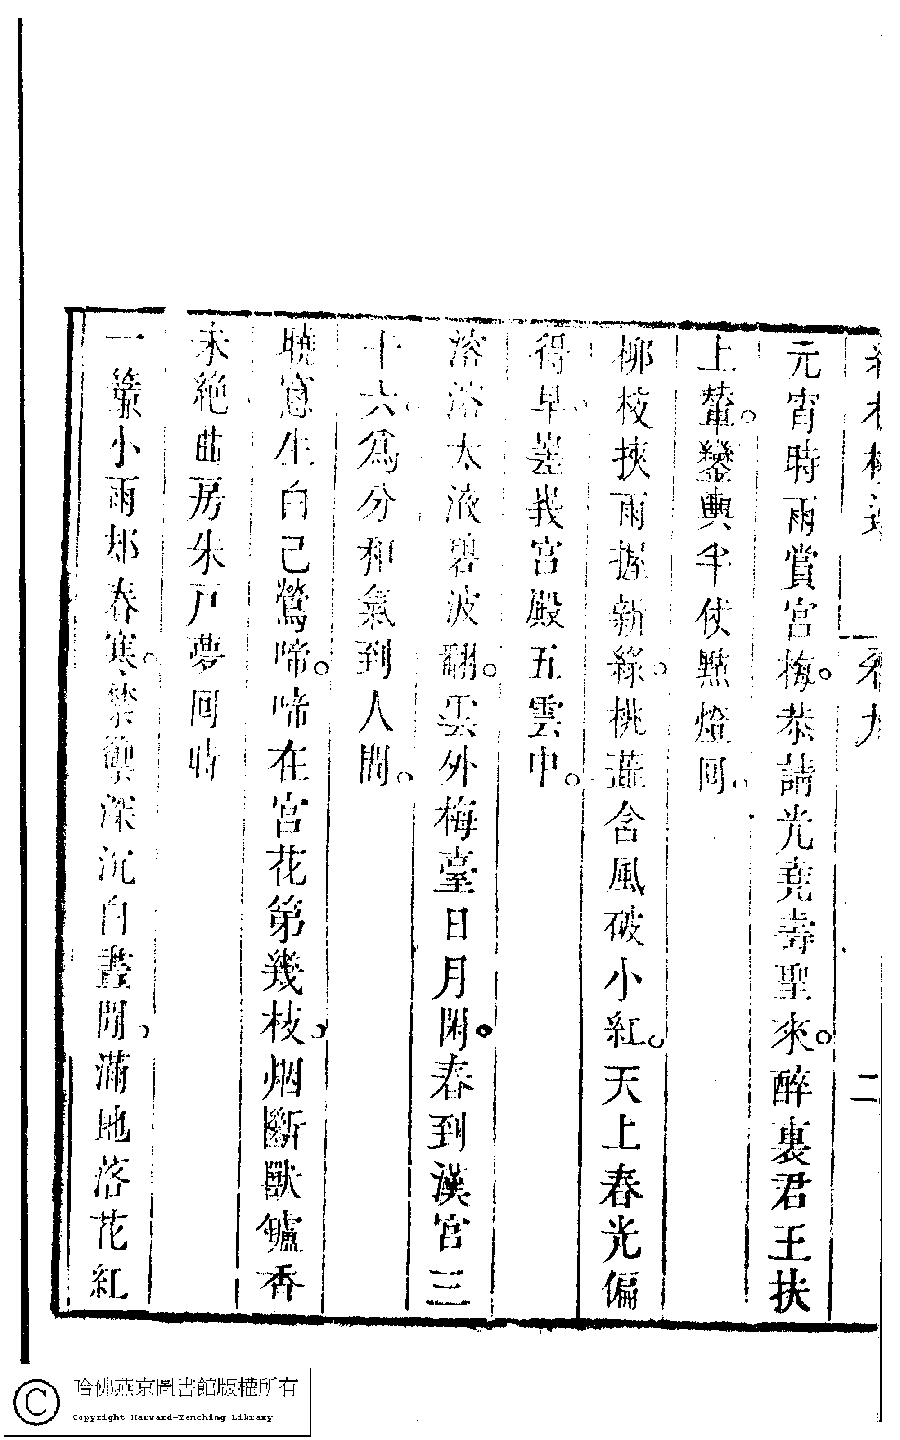 卷九
二
元宵時雨賞宮梅。恭請光堯壽聖來。醉裏君王扶
上輦。鑾輿半仗點燈回。
柳枝挾雨握新綠。桃蘂含風破小紅。天上春光偏
得早。嵳峩宮殿五雲中。
溶溶太液碧波翻。雲外梅臺日月閑。春到漢宮三
十六。爲分和氣到人間。
曉窓生白已鶯啼。啼在宮花第幾枝。烟斷獸鑪香
未絶曲房朱戸夢回時
一簾小雨却春寒。禁籞深沉白晝閒。滿地落花紅
哈佛燕京圖書館版權所有
Copyright Harvard-Yenching Library